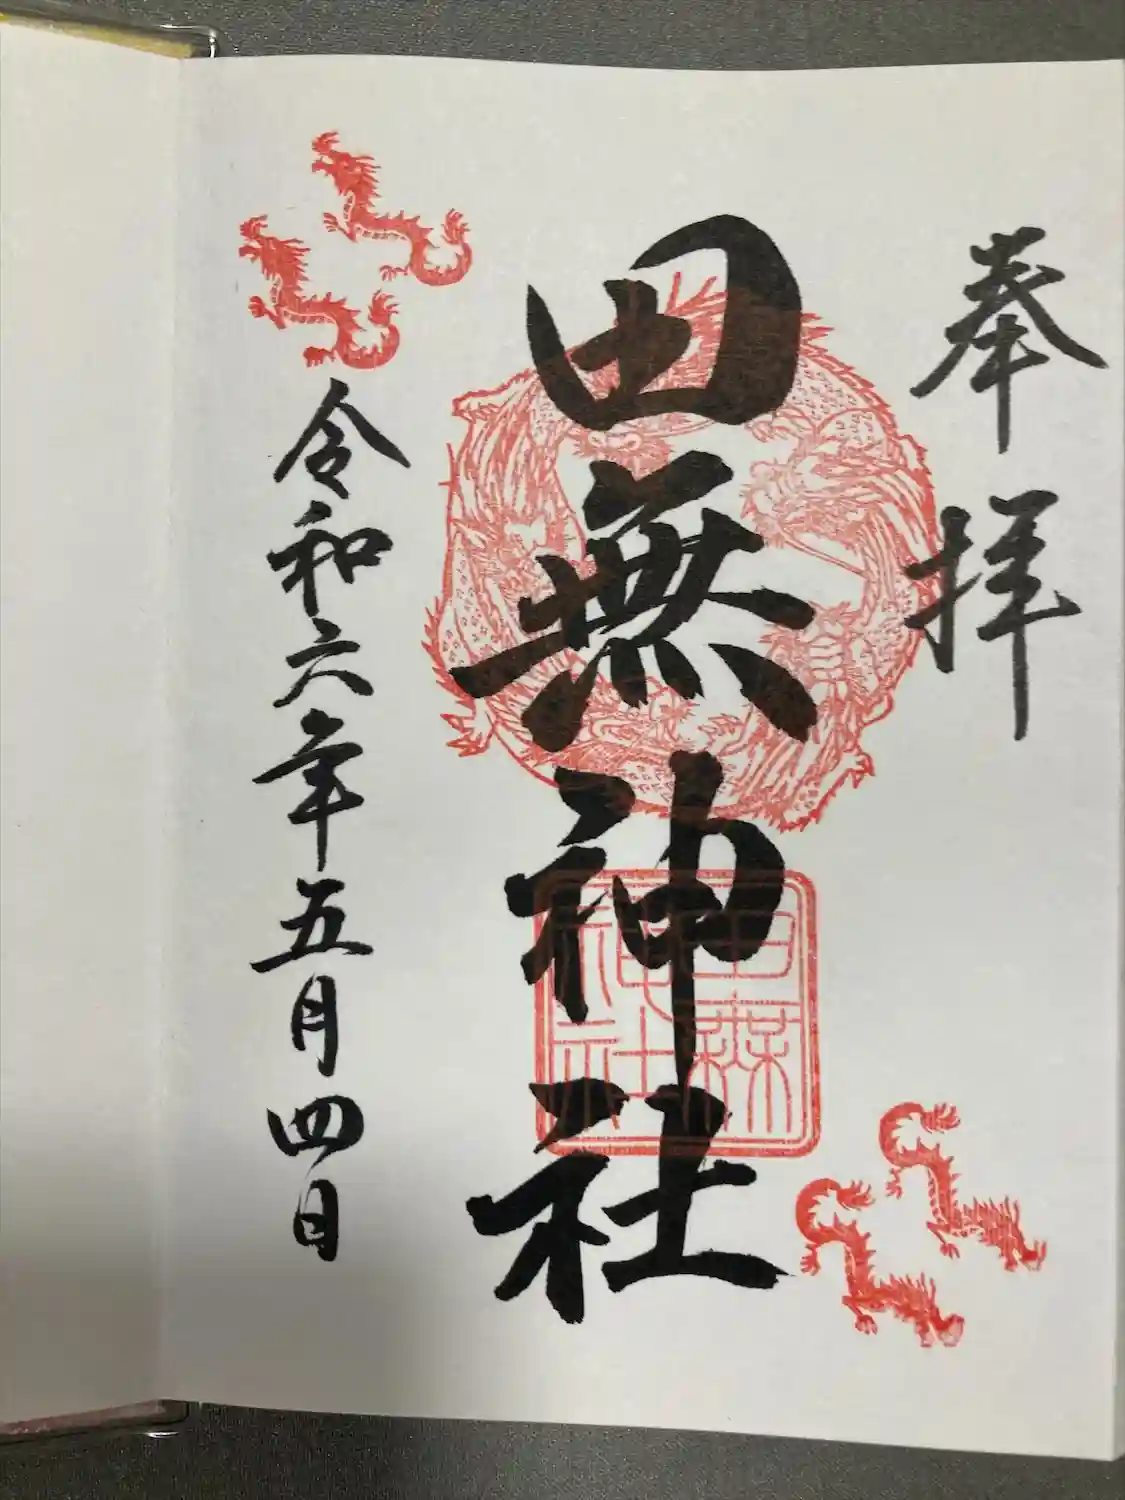 奉拝
田無神社
田無神社
令和六年五月四日